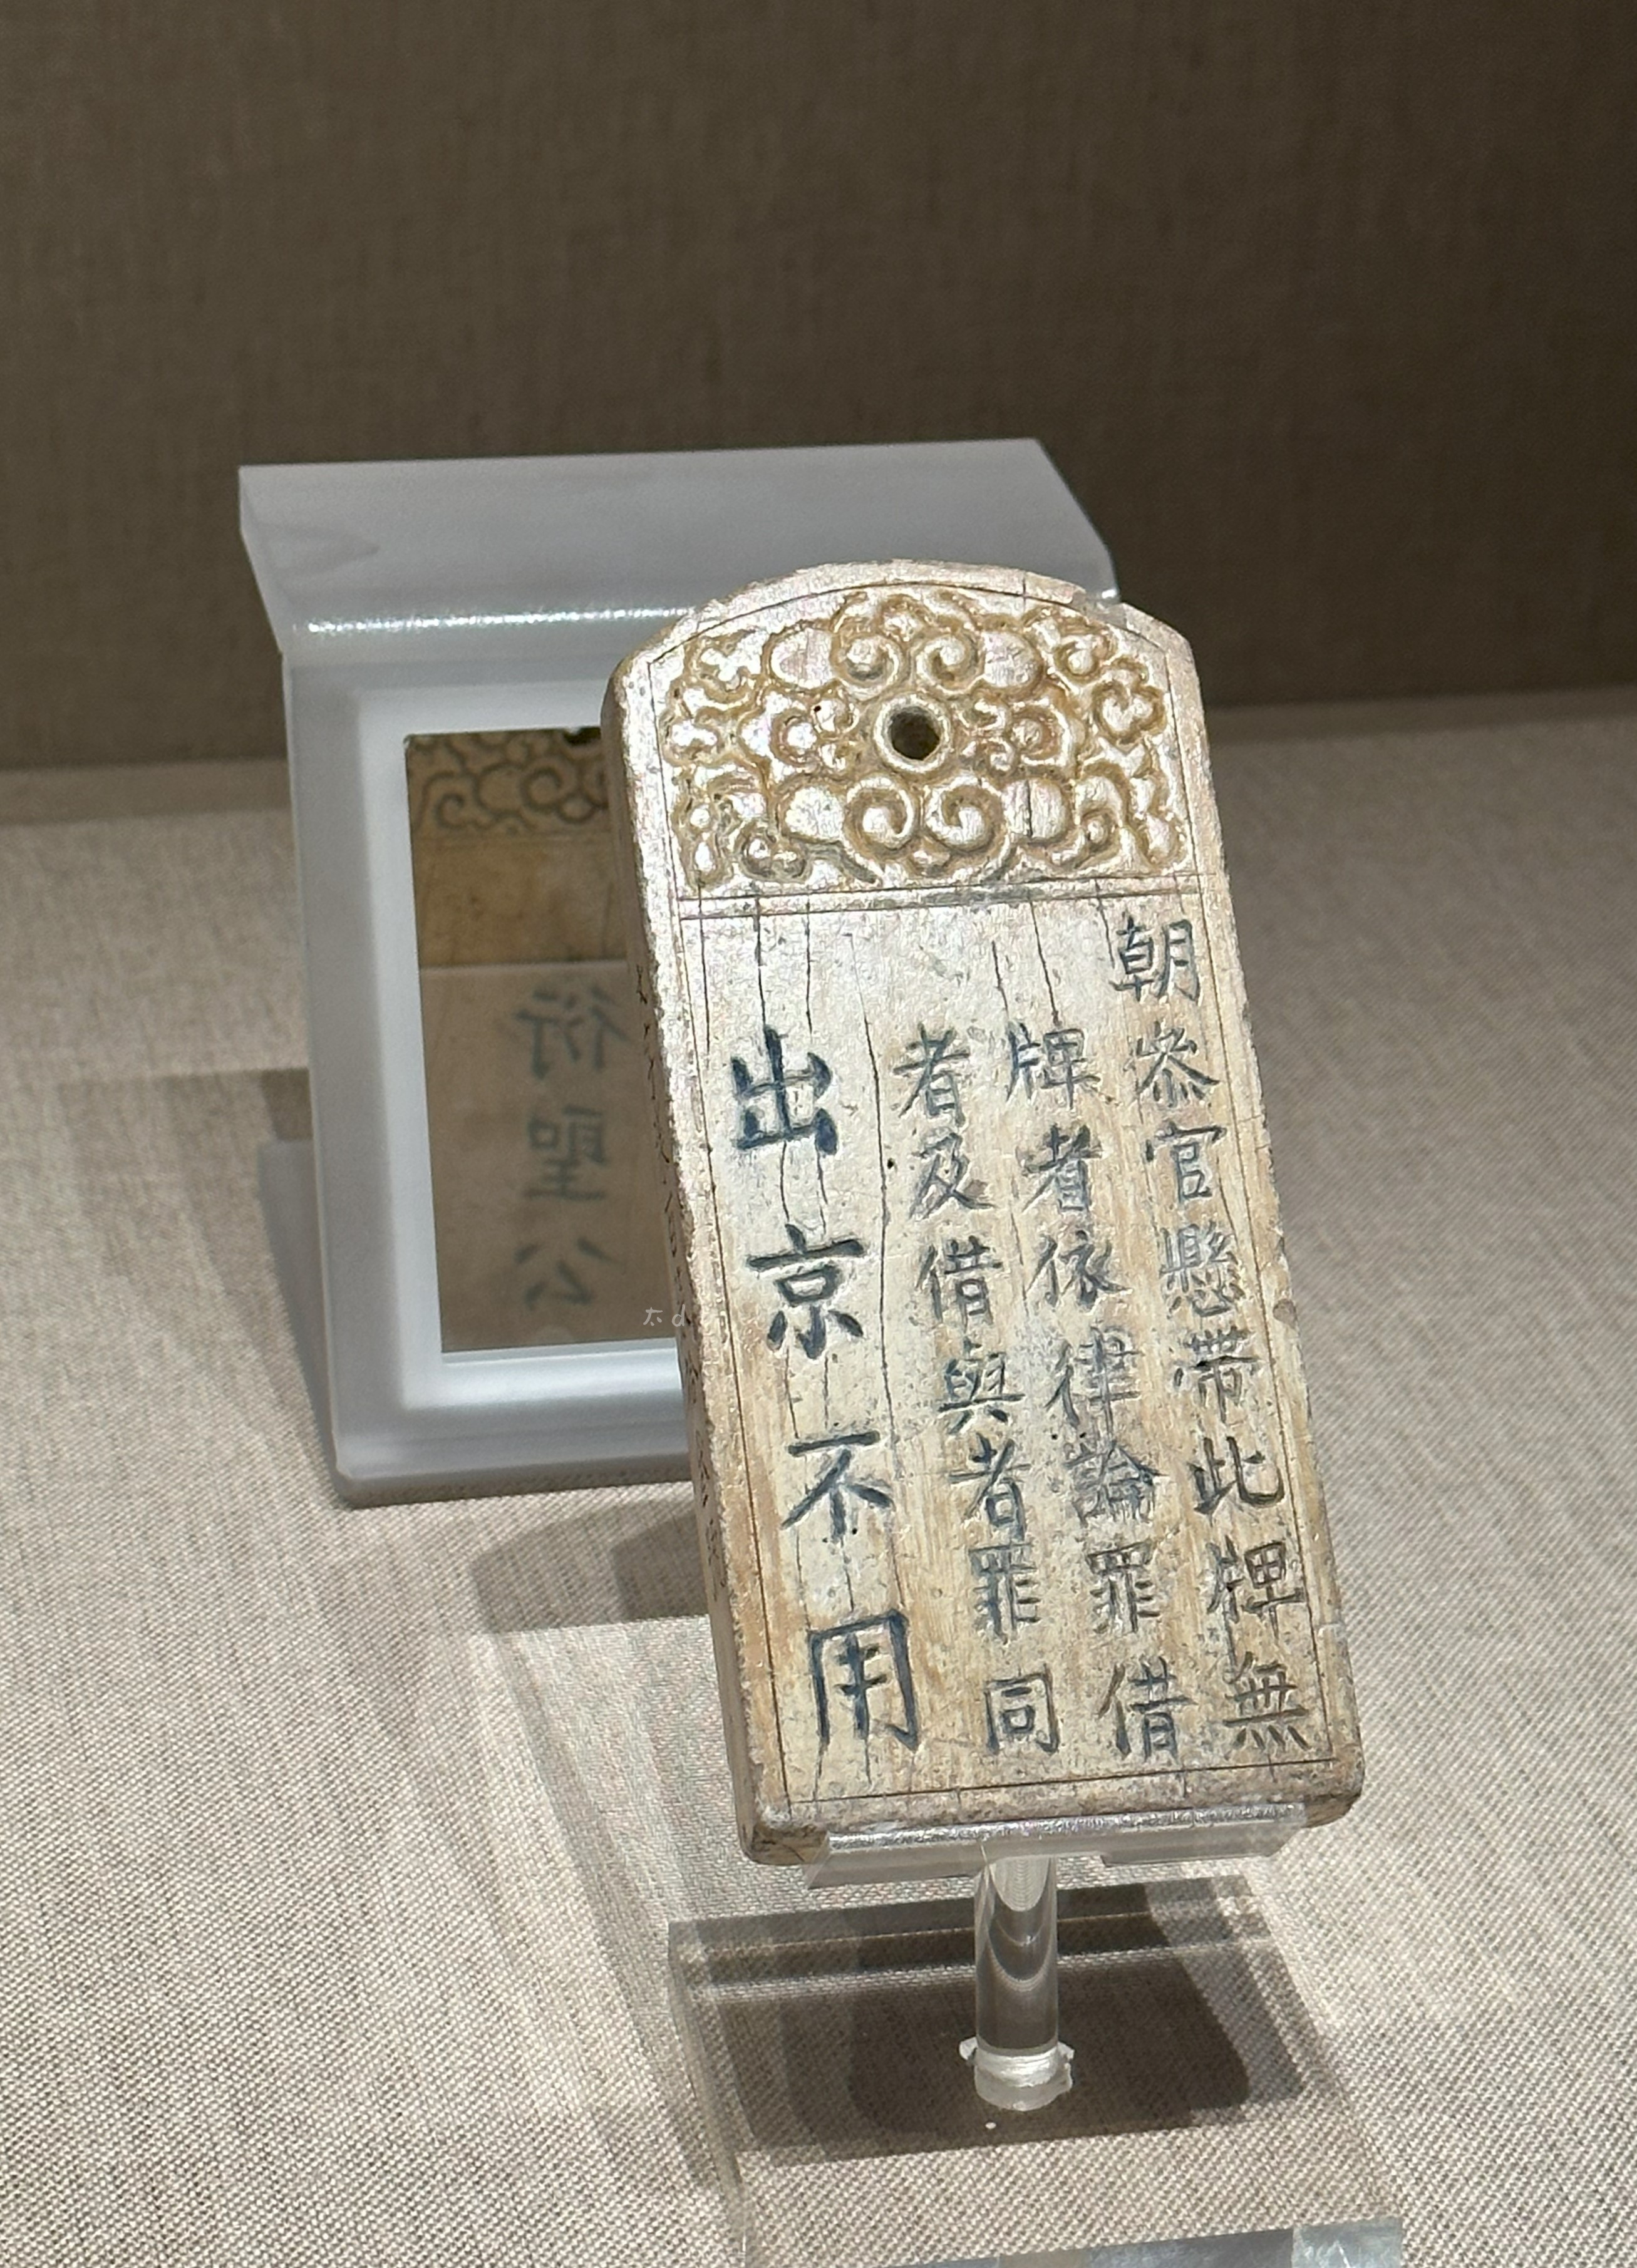 朝參官懸帶此牌無
牌者依律論罪借
者及借與者罪同
出京不用
衍聖公